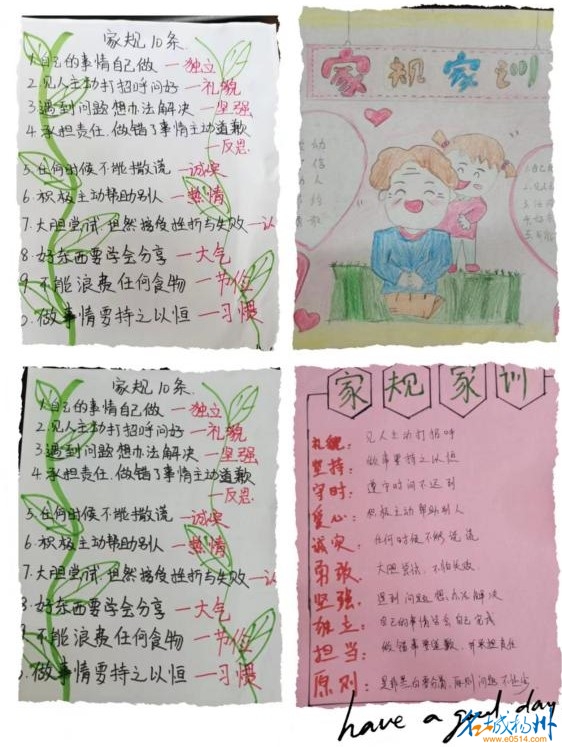 家规10条
1.自己的事情自己做 一独立
2.见人主动打招呼问好 一礼貌
3.遇到问题想办法解决 一坚强
4.承担责任，做错了事情主动道歉
一反思
5.任何时候不能撒谎 一诚实
6.积极主动帮助别人 一热情
7.大胆尝试，坦然接受挫折与失败一认
8.好东西要学会分享 一大气
9.不能浪费任何食物 一节位
做事情要持之以恒 一习惯
家规家训
家规10条
1.自己的事情自己做 一独立
2.见人主动打招呼问好 一礼貌
3.遇到问题想办法解决 一坚强
4.承担责任，做错了事情主动道歉
一反思
5.任何时候不能撒谎 一诚实
6.积极主动帮助别人 一热情
7.大胆尝试，坦然接受挫折与失败一
好东西要学会分享 一大气
不能浪费任何食物 一节位
做事情要持之以恒 一习惯
家规家训
礼貌：见人主动打招呼
坚持：做事要持之以恒
守时：遵守时间不迟到
爱心：积极主动帮助别人
诚实：任何时候不能说谎
勇敢：大胆尝试，不怕失败
坚强：遇到问题想办法解决
独立：自己的事情要自己完成
担当：做错事要道歉，并承担责任
原则：是非善恶要分清，原则问题不
have a good day
名城扬州
www.e0514.com